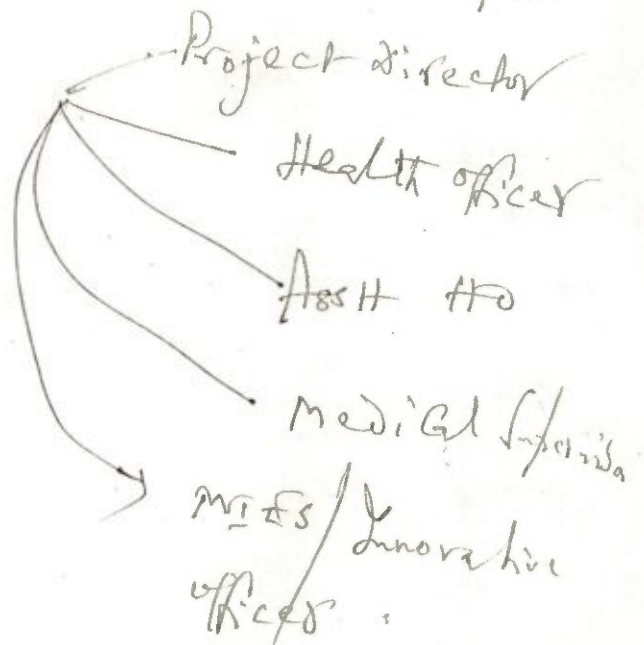 Project Director
Health officer
Asst HO
Medical
/ Innovative
officer.